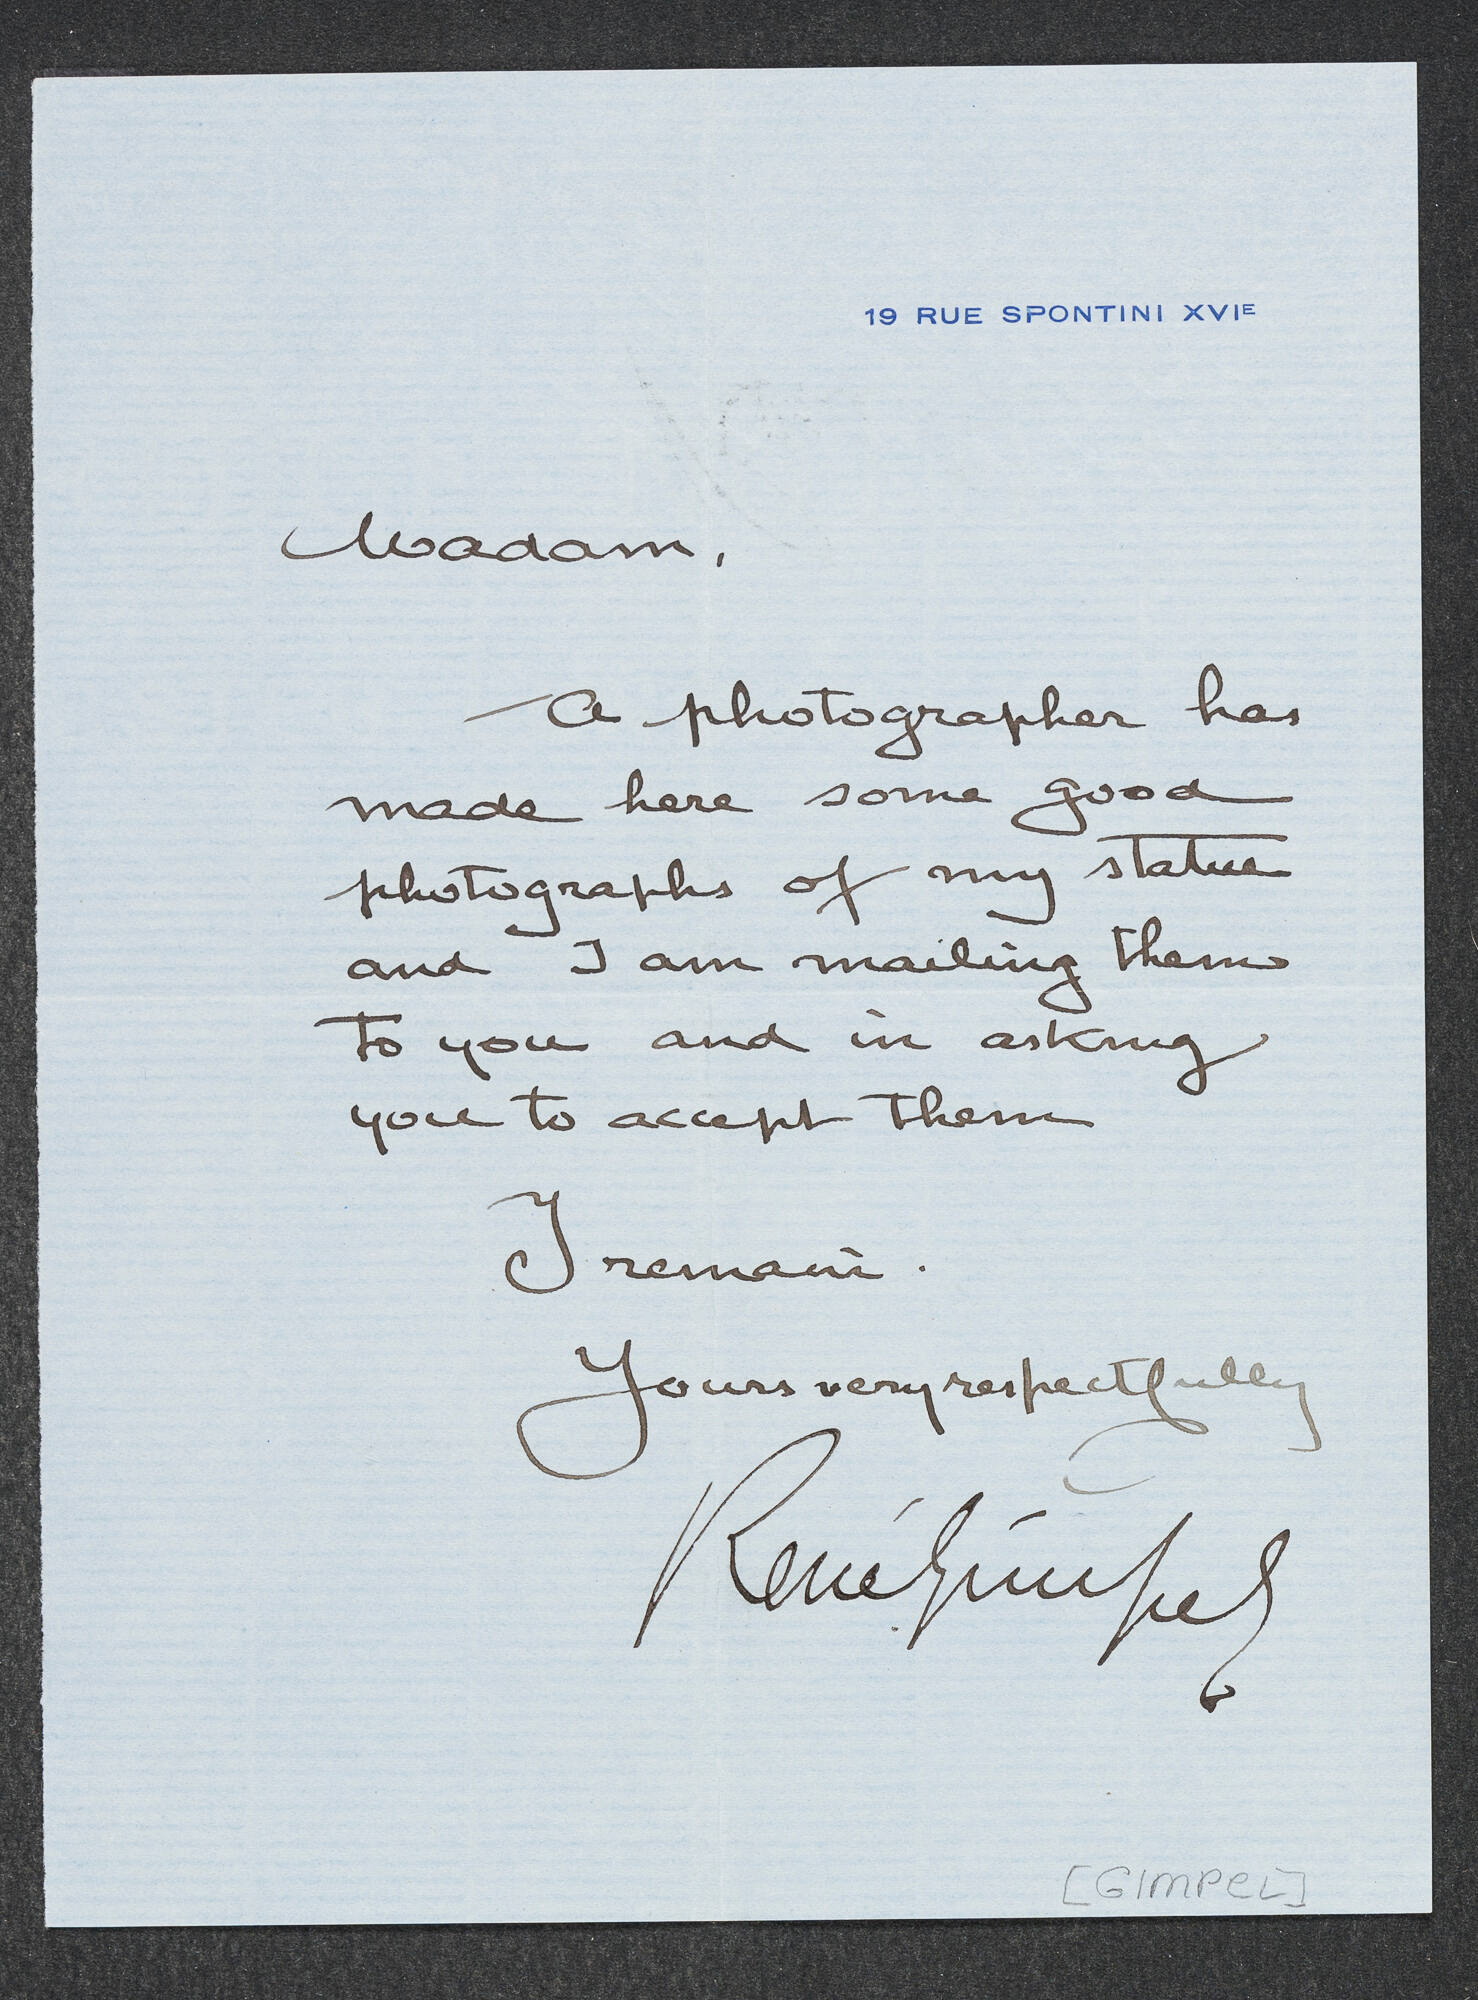 19 RUE SPONTINI XVIE
Madam,
A photographer has
made here some good
photographs of my statue
and I am mailing them
to you and in asking
you to accept them
I remain.
Yours very respectfully
René Gimpel
[GIMPEL]